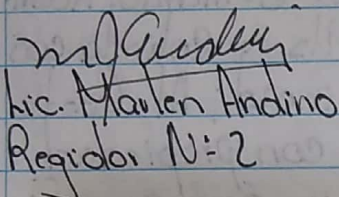 Lic. Marlen Andino
Regidor N=2